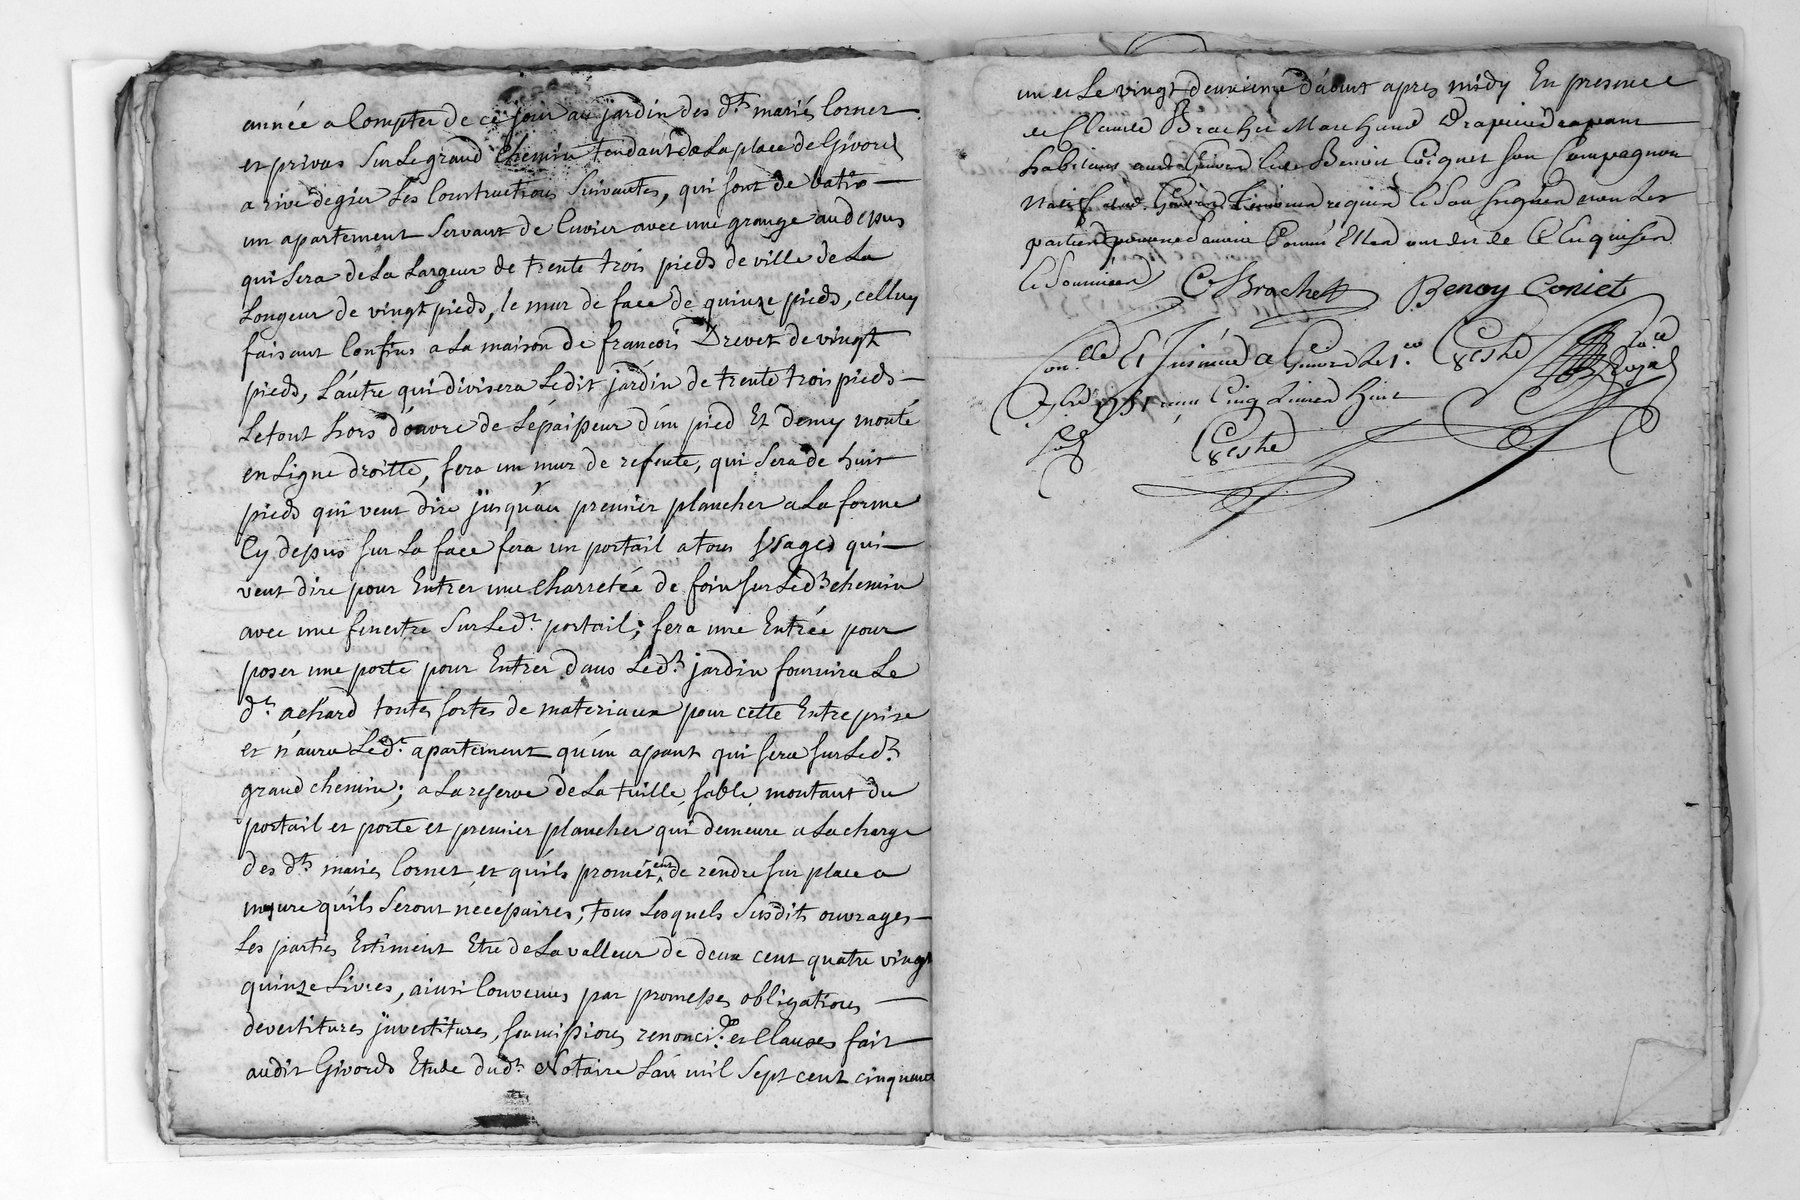 année a Compter de ce jour au jardin des dts mariés Cornet
et privas Sur Le grand Chemin tendant de La place de Givord
a rive degier Les Constructions Suivantes, qui sont de batir
un apartement Servant de Cuvier avec une grange audepus
qui Sera de La Largeur de trente trois pieds de ville de La
Longeur de vingt pieds, le mur de face de quinze pieds, celluy
faisant Confins a La maison de francois Drevet de vingt
pieds, L'autre qui divisera Ledit jardin de trente trois pieds
Le tout hors d'oeuvre de L'épaisseur d'un pied Et demy monté
en Ligne droitte, fera un mur de refente, qui Sera de huit
pieds qui veut dire jusqu'au premier plancher a La forme
Cy depus sur La face fera un portail a tous Usages qui
veut dire pour Entrer une Charretée de foin sur Led. chemin
avec une finestre Sur Ledt. portail; fera une Entrée pour
poser une porte pour Entrer dans Ledt. jardin fournira Le
dt. achard toutes sortes de materiaux pour cette Entreprise
et n'aura Ledt. apartement qu'un apant qui sera sur Ledt.
grand chemin; a La reserve de La tuille, sable, montant du
portail et porte et premier plancher qui demeure a La charge
des dts mariés Cornet et qu'ils promettent de rendre sur place a
mesure qu'ils Seront nécepaires; tous Lesquels Susdits ouvrages
Les parties Estiment Etre de La valleur de deux cent quatre vingt
quinze Livres, ainsi Convenus par promesses obligations
devestitures jnvestitures, soumissions renonci.ons et Clauses fait
audit Givords Etude dudt. Notaire L'an mil Sept cent cinquante
un et Le vingt deuxieme d'aoust apres midy En presence
de Claude Brachet Marchand Drapier drapant
habitant aud. Givord et de Benoit Coignet son Compagnon
natif dud. Givord Temoins requis et Soussignés non Les
parties pour ne Scavoir Comme Elles ont dit de Ce Enquises
et Sommées
C Brachet Benoy Coniet
Con.lle Et Jnsinué a Givord Le 1.er
7bre 1751 reçu Cinq Livres huit
sols